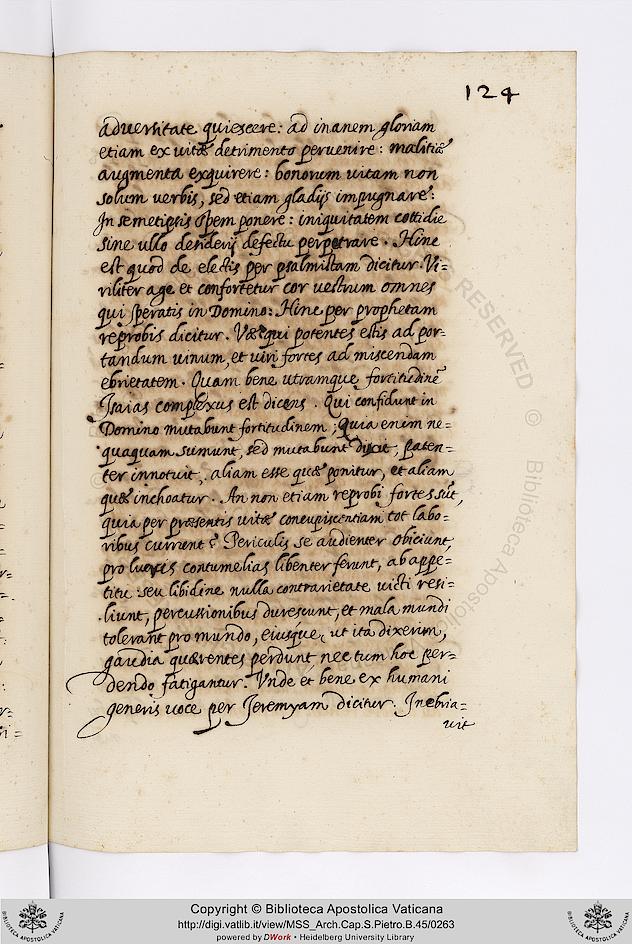 124
adversitate quiescere: ad inanem gloriam
etiam ex vitæ detrimento pervenire: malitiæ
augmenta exquirere: bonorum vitam non
solum verbis, sed etiam gladijs impugnare:
In semetipsis spem ponere: iniquitatem cottidie
sine ullo denderij defectu perpetrare. Hinc
est quod de electis per psalmistam dicitur. Vi=
riliter age et confortetur cor vestrum omnes
qui speratis in Domino: Hinc per prophetam
reprobis dicitur. Væ qui potentes estis ad por=
tandum uinum, et uiri fortes ad miscendam
ebrietatem. Quam bene utramque fortitudinē
Isaias complexus est dicens. Qui confidunt in
Domino mutabunt fortitudinem; Quia enim ne=
quaquam sumunt, sed mutabunt dixit, paten=
ter innotuit, aliam esse quæ ponitur, et aliam
quæ inchoatur. An non etiam reprobi fortes sūt,
quia per præsentis vitæ concupiscentiam tot labo=
ribus currunt? Periculis se audienter obiciunt,
pro lucris contumelias libenter ferunt, ab appe=
titu seu libidine nulla contrarietate victi resi=
liunt, percussionibus durescunt, et mala mundi
tolerant pro mundo, eiusque, ut ita dixerim,
gaudia quærentes perdunt, nec tum hoc per=
dendo fatigantur. Vnde et bene ex humani
generis uoce per Jeremyam dicitur. Inebria=
uit
RESERVED © Biblioteca Apostolica
Copyright © Biblioteca Apostolica Vaticana
http://digi.vatlib.it/view/MSS_Arch.Cap.S.Pietro.B.45/0263
powered by DWork • Heidelberg University Library